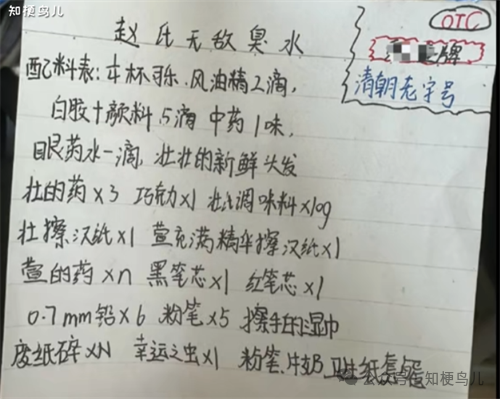 知梗鸟儿
OTC
牌
清朝老字号
赵氏无敌臭水
配料表:半杯可乐、风油精2滴,
白胶+颜料、5滴 中药1味,
眼药水一滴, 壮壮的新鲜头发
壮的药×3 巧克力×1 壮壮调味料×10g
壮擦汉纸×1 萱充满精华擦汉纸×1
萱的药×n 黑笔芯×1 红笔芯×1
0.7mm铅×6 粉笔×5 擦手的湿巾
废纸碎×N 幸运之虫×1 粉笔、牛奶 卫生纸
公众号·知梗鸟儿